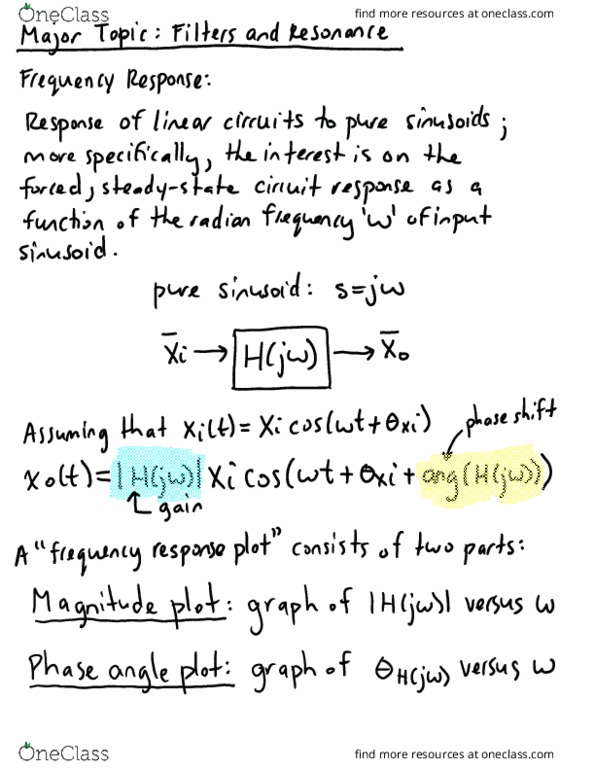 OneClass
find more resources at oneclass.com
Major Topic: Filters and Resonance
Frequency Response:
Response of linear circuits to pure sinusoids;
more specifically, the interest is on the
forced, steady-state circuit response as a
function of the radian frequency 'w' of input
sinusoid.
pure sinusoid: s=jω
X̄i → H(jω) → X̄o
phase shift
Assuming that xi(t)=Xi cos(ωt+θxi)
xo(t)=|H(jω)|Xi cos(ωt+θxi+ang(H(jω)))
gain
A "frequency response plot" consists of two parts:
Magnitude plot: graph of |H(jω)| versus ω
Phase angle plot: graph of θH(jω) versus ω
OneClass
find more resources at oneclass.com